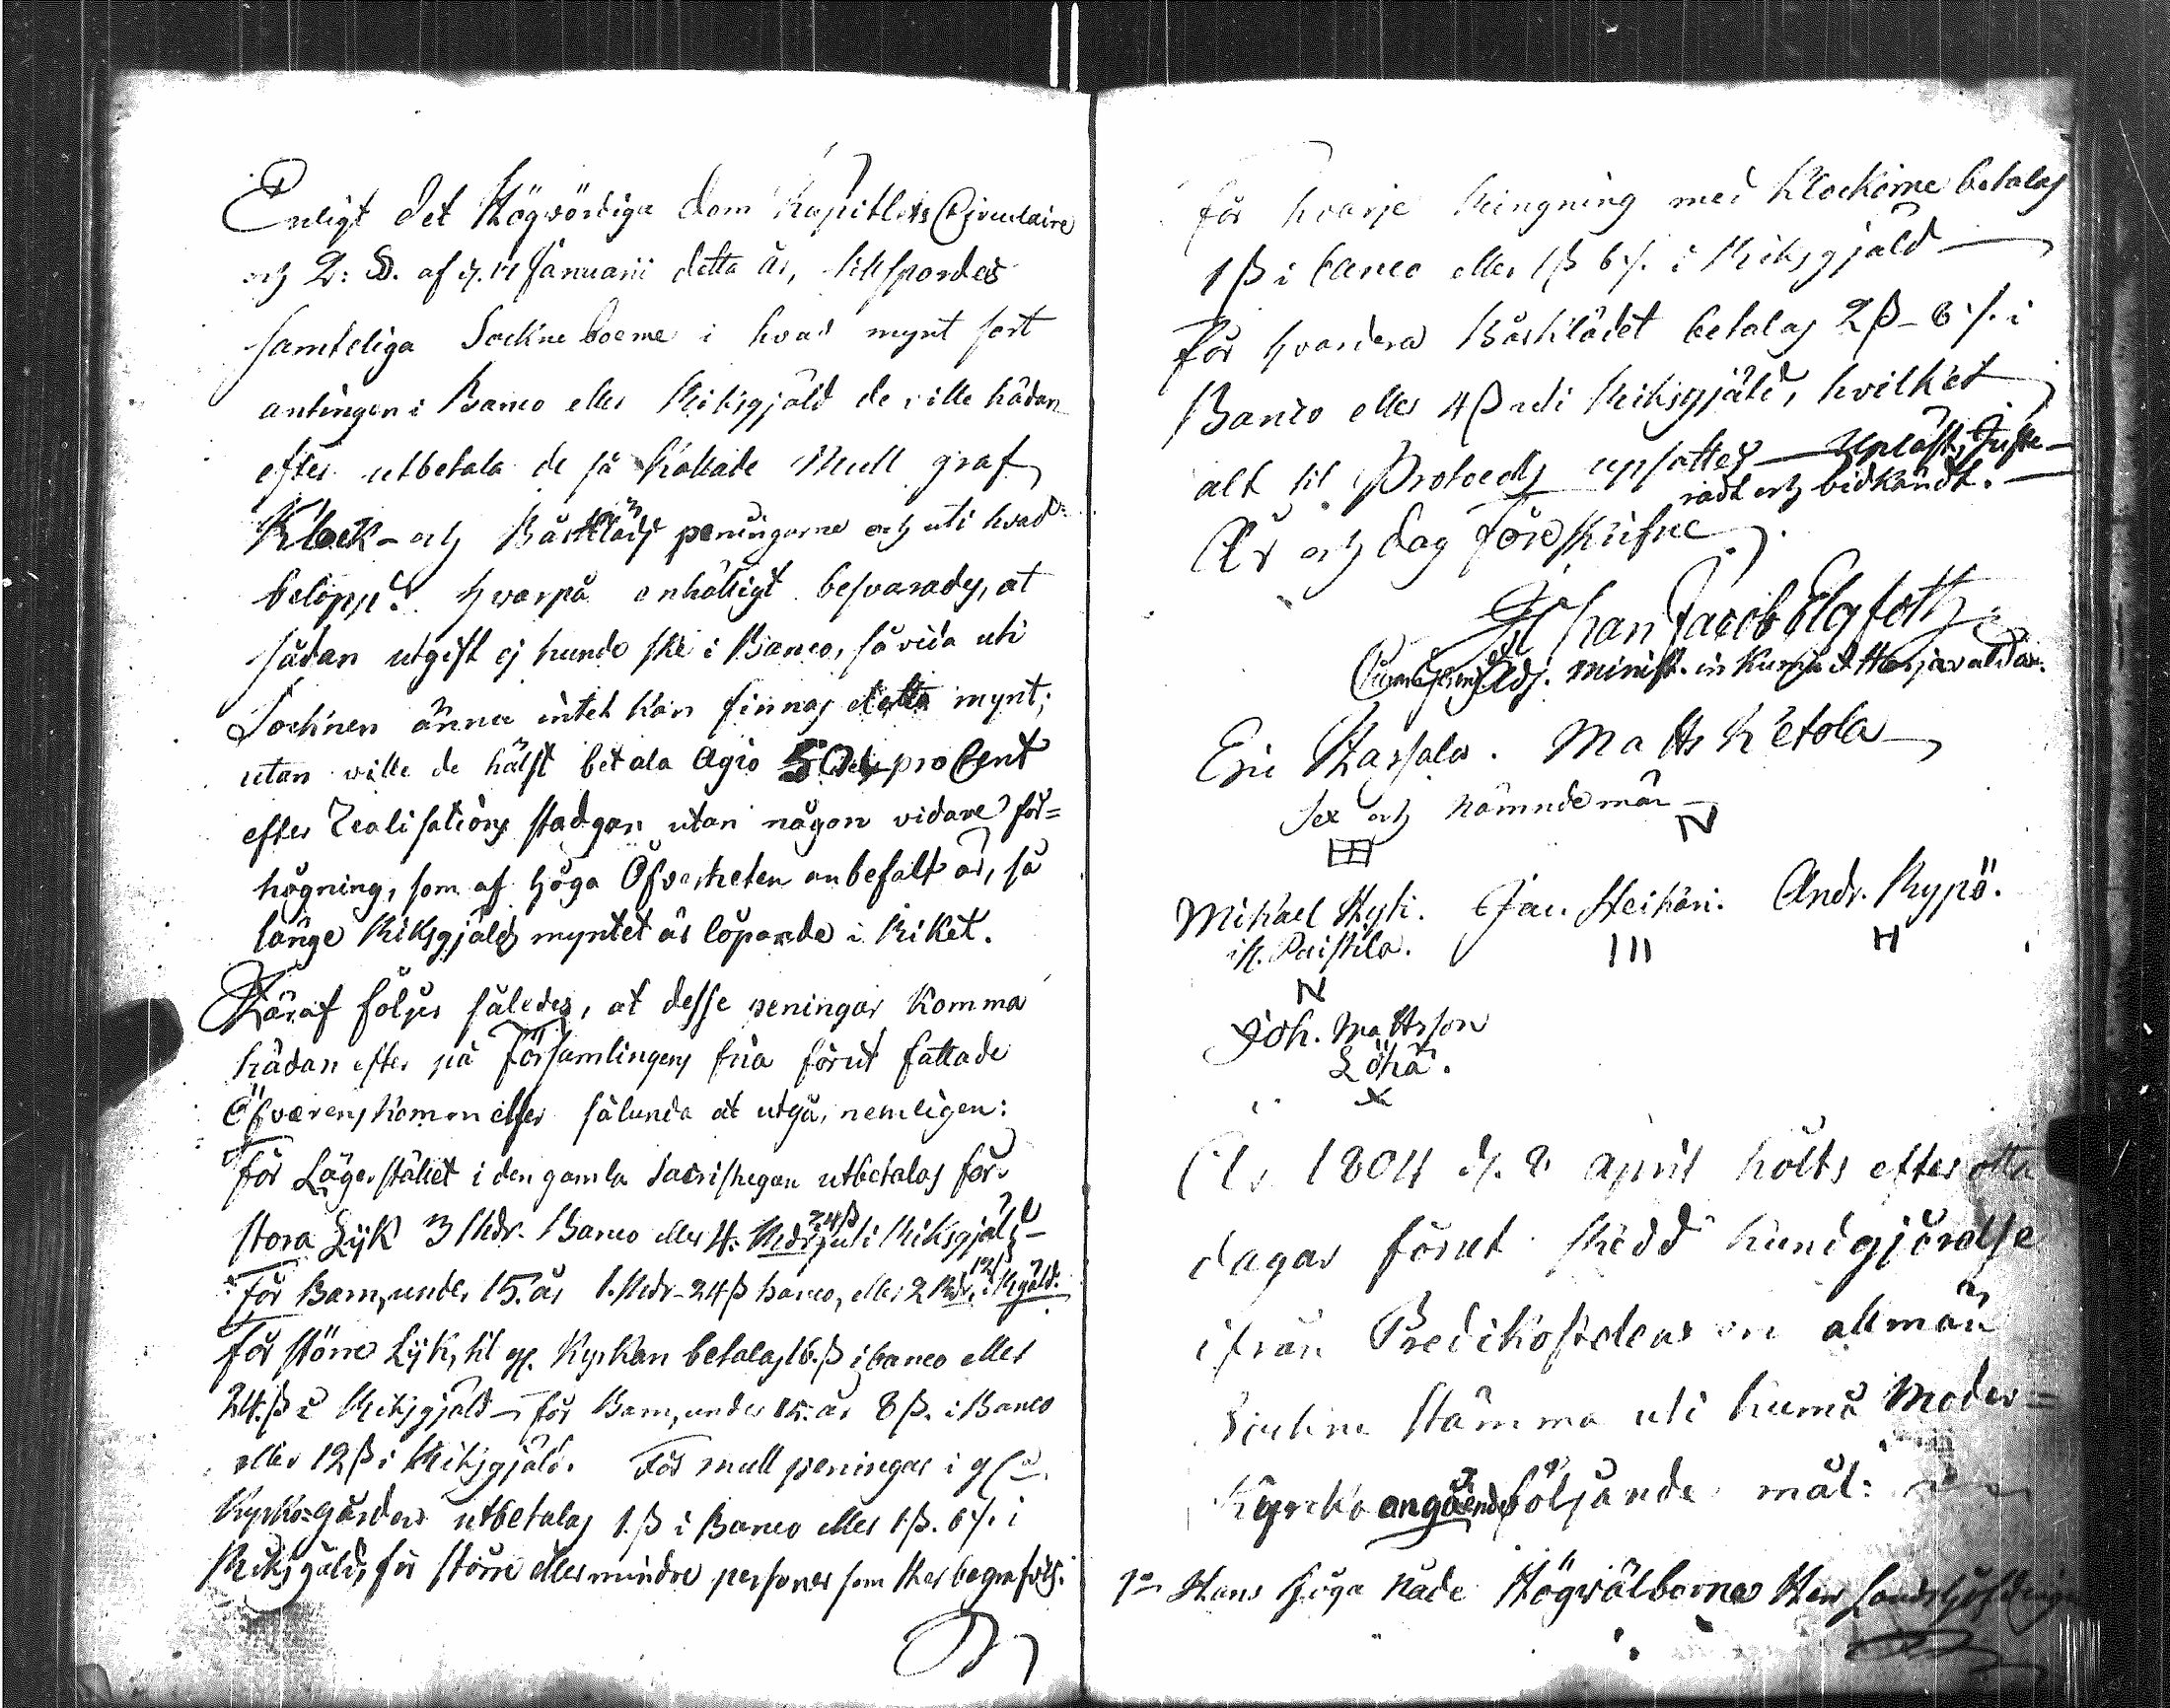 Enligt det Högvördiga Dom Kapitlets Circulaire
och 2: §. af d. 11 Januarii detta år, tillspordes
samteliga Sockneboerne i hvad mynt sort
antingen i Banco eller Riksgjäld de ville hädan
efter utbetala de så kallade Mull graf
Klock- och Bårklädspeningarne och uti hvad
belopp? hvarpå enhälligt besvarades, at
sådan utgift ej kunde ske i Banco, så vida uti
Socknen ännu intet kan finnas detta mynt;
utan ville de hälst betala Agio 50 pro Cent
efter Realisations stadgan utan någon vidare för=
högning, som af höga Öfverheten anbefalt är, så
länge Riksgjälds myntet är löpande i Riket.
Häraf följer således, at desse peningar komma
hädan efter på Församlingens fria förut fattade
Öfverenskommelser sålunda at utgå, nemligen:
För Lägerstället i den gamla Sacristigan utbetalas för
stora Lijk 3 Rdr. Banco eller 4. Rdr 24 ß uti Riksgjäld-
För Barn, under 15. år 1. Rdr- 24 ß banco, eller 2 Rdr. 12 ß i Rgäld.
för större Lijk, til g. Kyrkan betalas 16. ß i banco eller
24. ß i Riksgjäld- för Barn, under 15. år 8 ß. i Banco
eller 12 ß i Riksgjäld. För mull peningar i g la
Kyrko=gården utbetalas 1. ß i Banco eller 1 ß. 6 /. i
Riksgäld, för större eller mindre personer som ther begrafvits.
för hvarje Ringning med Klockorne betalas
1 ß i banco eller 1 ß 6 /. i Riksgjäld
för hvardera Bårklädet betalas 2 ß - 8 /. i
Banco eller 4 ß uti Riksgjäld, hvilket
alt til Protocoll upsattes — Upläst, Juste-
radt och vidkändt. —
År och dag föreskrifne
Johan Jacob Elgfoth
Adj. Minist. in Kumo et Harjavalda.
Eric Hassala. Matts Ketola
Sex och Nämndemän
N
Mikael Hyti. Jac. Heikari. Andr. Rypö.
if. Paistila. III H
N
Joh. Mattsson
Löhä.
x
År 1804 d. 8 April hölts efter otta
dagar förut skedd kundgjörelse
ifrån Predikostolen en allmän
Sockne stämma uti Kumo Moder=
Kyrcko angående följande mål:
1o Hans Höga Nåde Högvälborne Herr Landshöfdinge